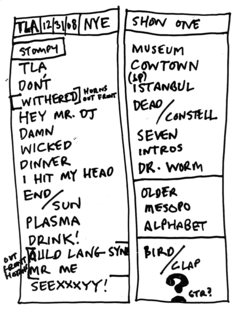 TLA 12/31/08 NYE
STOMPY
TLA
DON'T
WITHERED HORNS OUT FRONT
HEY MR. DJ
DAMN
WICKED
DINNER
I HIT MY HEAD
END/SUN
PLASMA
DRINK!
AULD LANG-SYNE
OUT FRONT HORNS
MR ME
SEEXXXYY!
SHOW ONE
MUSEUM
COWTOWN
(LP)
ISTANBUL
DEAD/CONSTELL
SEVEN
INTROS
DR. WORM
OLDER
MESOPO
ALPHABET
BIRD/CLAP
? GTR?